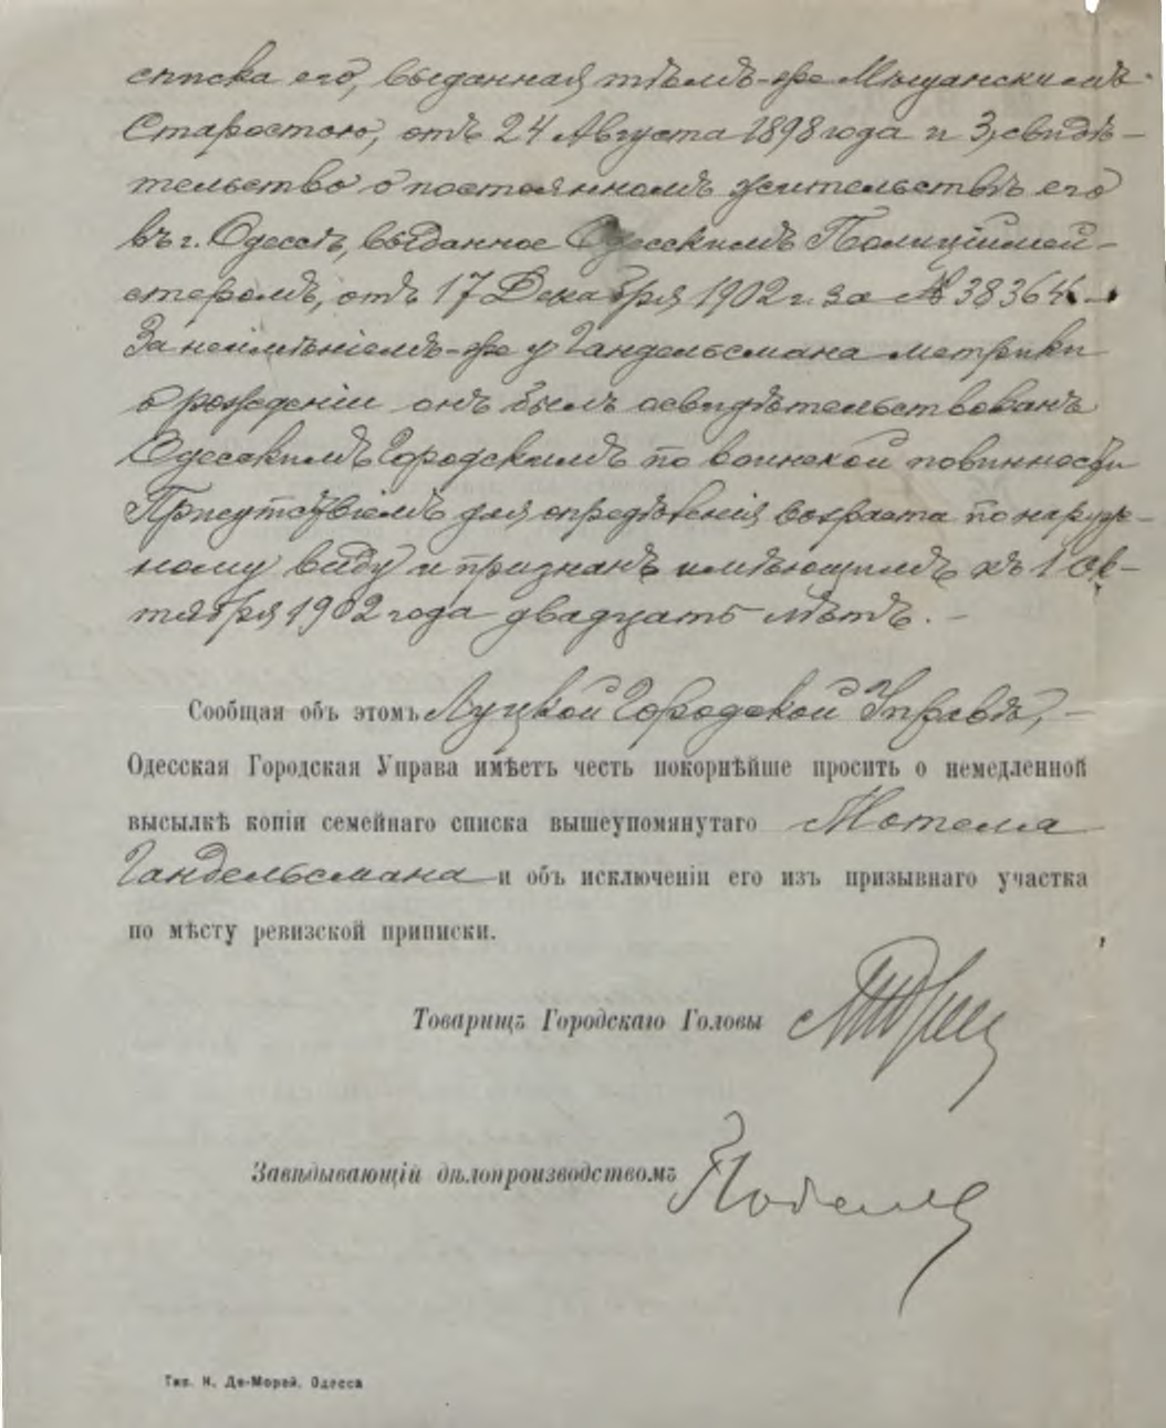 списка его, выданная тѣмъ-же Мѣщанскимъ
Старостою, отъ 24 Августа 1898 года и 3, свидѣ-
тельство о постоянномъ жительствѣ его
въ г. Одессѣ, выданное Одесскимъ Полиціймей-
стеромъ, отъ 17 Декабря 1902 г. за №
За неимѣніемъ-же у Гандельсмана метрики
о рожденіи онъ былъ освидѣтельствованъ
Одесскимъ Городскимъ по воинской повинности
Присутствіемъ для опредѣленія возраста по наруж-
ному виду и признанъ имѣющимъ къ 1 Ок-
тября 1902 года двадцать лѣтъ. -
Сообщая объ этомъ Луцкой Городской Управѣ, -
Одесская Городская Управа имѣетъ честь покорнѣйше просить о немедленной
высылкѣ копіи семейнаго списка вышеупомянутаго Мотеля
Гандельсмана и объ исключеніи его изъ призывнаго участка
по мѣсту ревизской приписки.
Товарищъ Городскаго Головы
Завѣдывающій дѣлопроизводствомъ
Тип. Н. Де-Морей, Одесса